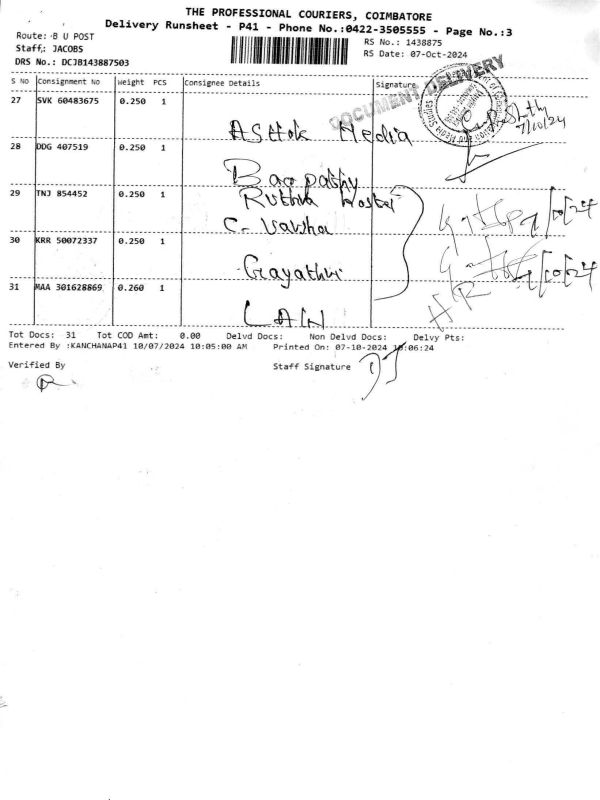 THE PROFESSIONAL COURIERS, COIMBATORE
Delivery Runsheet - P41 - Phone No.:0422-3505555 - Page No.:3
Route: B U POST
RS No.: 1438875
Staff: JACOBS
RS Date: 07-Oct-2024
DRS No.: DCJB143887503
S No Consignment No Weight PCS Consignee Details Signature
DOCUMENT DELIVERY
27 SVK 60483675 0.250 1
7/10/24
Ashok Media
28 DDG 407519 0.250 1
29 TNJ 854452 0.250 1
Hostel
C. Varsha
30 KRR 50072337 0.250 1
Gayathri
31 MAA 301628869 0.260 1
HR
LAW
Tot Docs: 31 Tot COD Amt: 0.00 Delvd Docs: Non Delvd Docs: Delvy Pts:
Entered By :KANCHANAP41 10/07/2024 10:05:00 AM Printed On: 07-10-2024 10:06:24
Verified By
Staff Signature